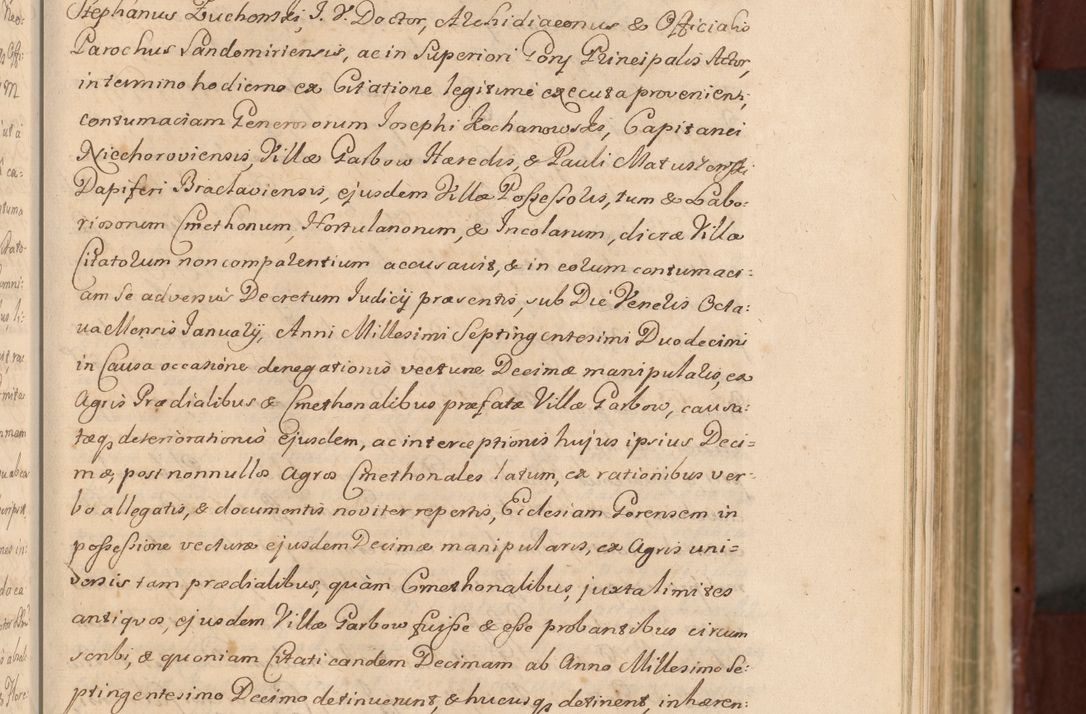 Stephanus Zuchowski, I. V. Doctor, Archidiaconus & Officialis
Parochus Sandomiriensis, ac in Superiori Ponŧ Principalis Actor,
in termino hodierno ex Citatione legitime executa proveniens,
contumaciam Generosorum Josephi Kochanowski, Capitanei
Niechoroviensis, Villæ Garbow Hæredis, & Pauli Matuszewski
Dapiferi Braclaviensis, ejusdem Villæ Possessoris, tum & Labo:
riosorum Cmethonum, Hortulanorum, & Incolarum, dictæ Villæ
Citatorum non comparentium accusavit, & in eorum contumaci:
am se adversus Decretum Judicij præsentis, sub Die Veneris Octa:
va Mensis Januarij, Anni Millesimi Septingentesimi Duodecimi
in Causa occasione denegationis vecturæ Decimæ manipularis, ex
Agris Prædialibus & Cmethonalibus præfatæ Villæ Garbow, causa:
tæq deteriorationis ejusdem, ac interceptionis hujus ipsius Deci=
mæ, post nonnullos Agros Cmethonales latum, ex rationibus ver-
bo allegatis, & documentis noviter repertis, Ecclesiam Gorensem in
possessione vecturæ ejusdem Decimæ manipularis, ex Agris uni=
versis tam prædialibus, quàm Cmethonalibus, juxta limites
antiquos, ejusdem Villæ Garbow fuisse & esse probantibus circum
scribi, & quoniam Citati eandem Decimam ab Anno Millesimo Se:
ptingentesimo Decimo detinuerunt, & hucusq detinent, inhæren: